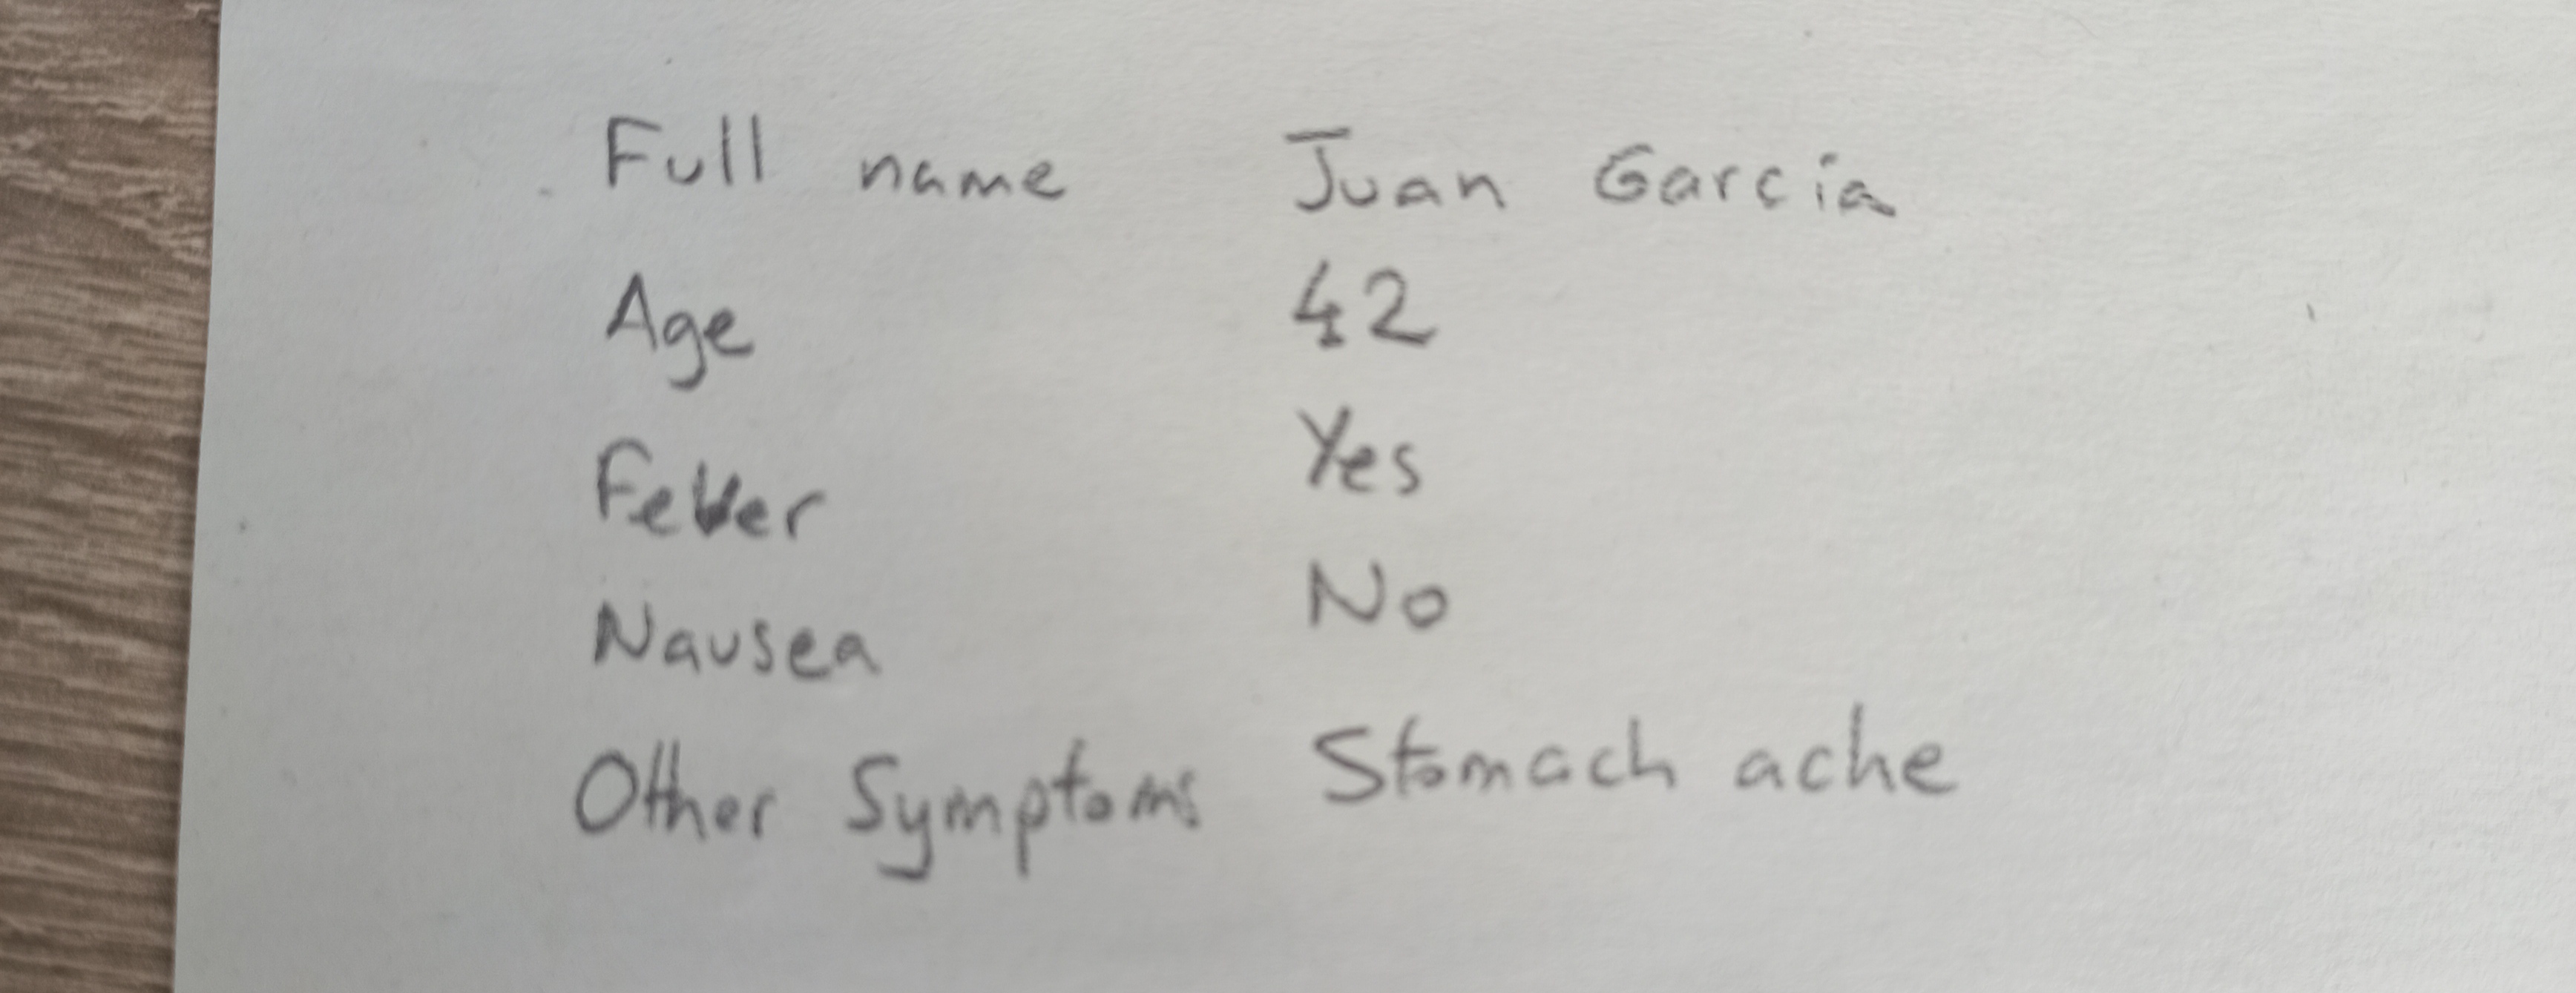 Full name Juan Garcia
Age 42
Fever Yes
Nausea No
Other Symptoms Stomach ache